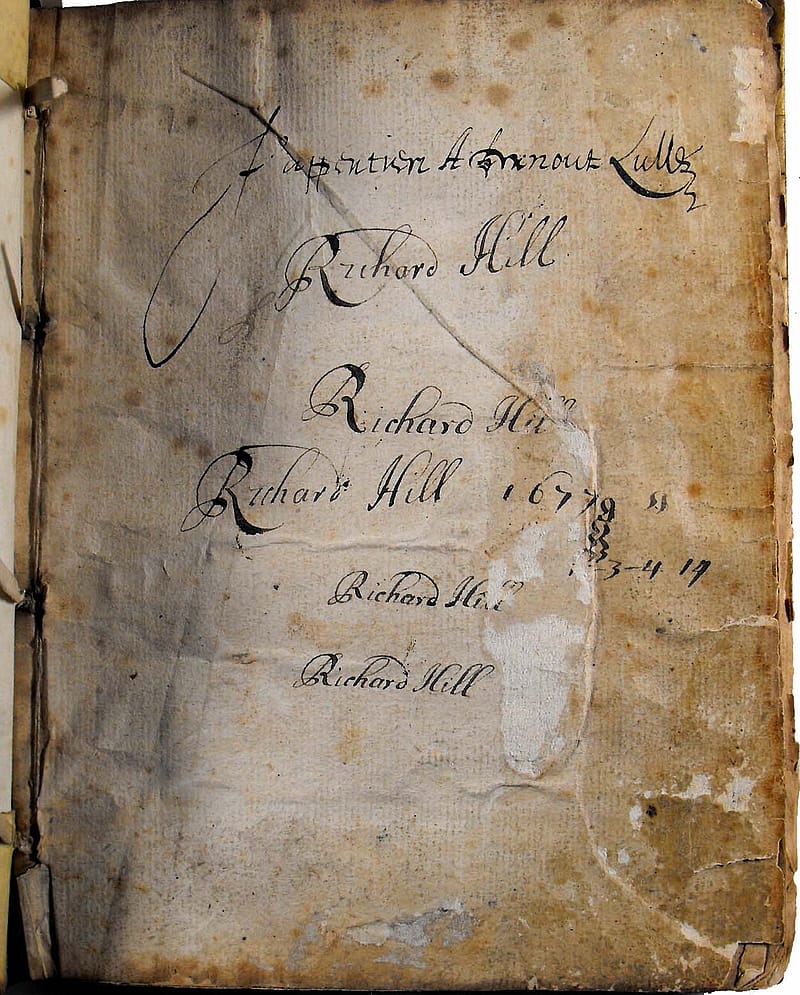 J'appentien A Arnout Lulls
Richard Hill
Richard Hill
Richard Hill 1677
3-4 14
Richard Hill
Richard Hill